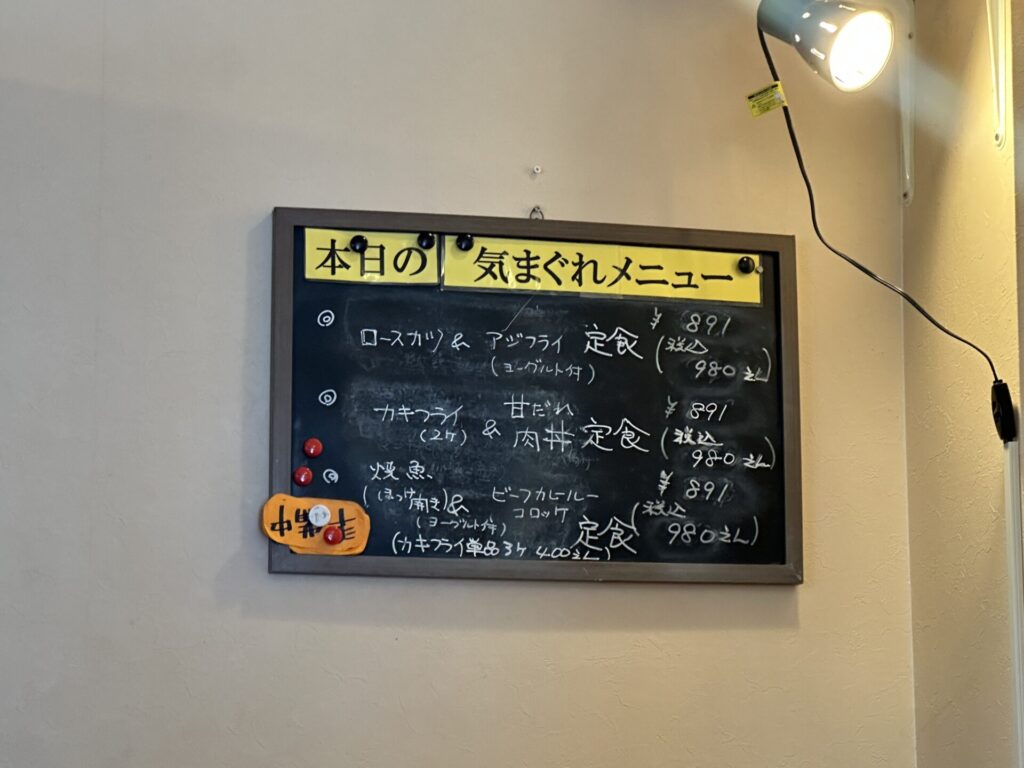 本日の 気まぐれメニュー
◎ ロースカツ & アジフライ 定食 ¥891
(ヨーグルト付) (税込 980えん)
◎ カキフライ (2ケ) & 甘だれ 肉丼 定食 ¥891
(税込 980えん)
◎ 焼魚 (ほっけ開き) & ビーフカレールー コロッケ 定食 ¥891
(ヨーグルト付) (税込 980えん)
(カキフライ単品3ケ 400えん)
準備中